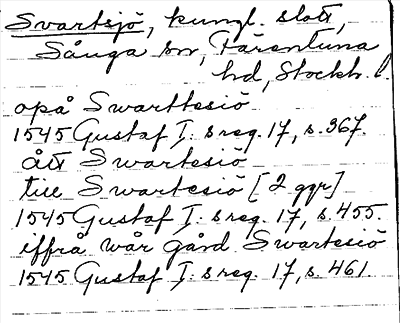 Svartsjö, kungl. slott,
Sånga sn, Färentuna
hd, Stockh. l.
opå Swarttesiö
1545 Gustaf I:s reg. 17, s. 367.
ått Swartesiö
till Swartesiö [2 ggr]
1545 Gustaf I:s reg. 17, s. 455.
iffrå wår gård Swartesiö
1545 Gustaf I:s reg. 17, s. 461.